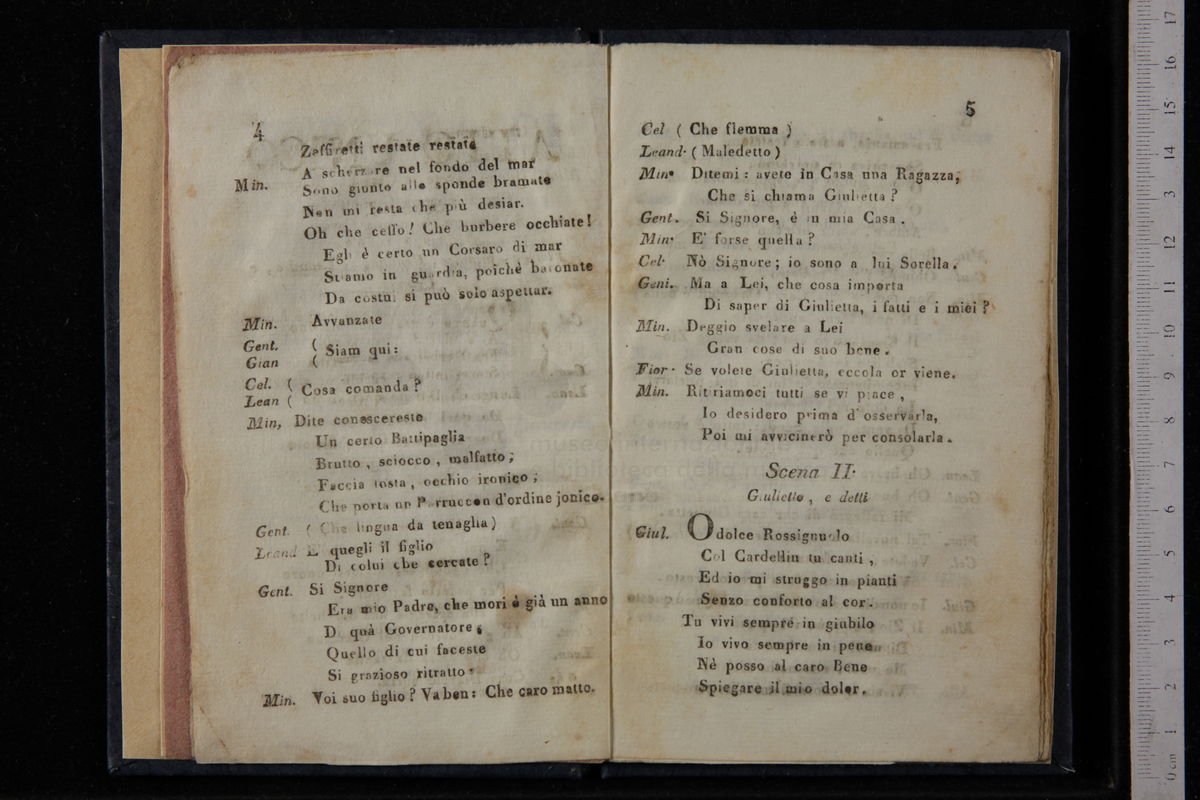 4
Zeffiretti restate restate
A scherzare nel fondo del mar
Min. Sono giunto alle sponde bramate
Non mi resta che più desiar.
Oh che ceffo! Che burbere occhiate!
Egli è certo un Corsaro di mar
Stiamo in guardia, poichè bastonate
Da costui si può solo aspettar.
Min. Avvanzate
Gent. (
Gian ( Siam qui:
Cel. (
Lean ( Cosa comanda?
Min, Dite conoscereste
Un certo Battipaglia
Brutto, sciocco, malfatto;
Faccia tosta, occhio ironico;
Che porta un Perruccon d'ordine jonico.
Gent. (Che lingua da tenaglia)
Leand E' quegli il figlio
Di colui che cercate?
Gent. Si Signore
Era mio Padre, che morì è già un anno
Di quà Governatore;
Quello di cui faceste
Si grazioso ritratto.
Min. Voi suo figlio? Va ben: Che caro matto.
5
Cel (Che flemma)
Leand. (Maledetto)
Min. Ditemi: avete in Casa una Ragazza,
Che si chiama Giulietta?
Gent. Si Signore, é in mia Casa.
Min. E' forse quella?
Cel. Nò Signore; io sono a lui Sorella.
Gent. Ma a Lei, che cosa importa
Di saper di Giulietta, i fatti e i miei?
Min. Deggio svelare a Lei
Gran cose di suo bene.
Fior. Se volete Giulietta, eccola or viene.
Min. Ritiriamoci tutti se vi piace,
Io desidero prima d'osservarla,
Poi mi avvicinerò per consolarla.
Scena II.
Giulietta, e detti
Giul. O dolce Rossignuolo
Col Cardellin tu canti,
Ed io mi struggo in pianti
Senzo conforto al cor.
Tu vivi sempre in giubilo
Io vivo sempre in pene
Nè posso al caro Bene
Spiegare il mio dolor.
museo internazionale
biblioteca della musica
0 cm 1 2 3 4 5 6 7 8 9 10 11 12 13 14 15 16 17